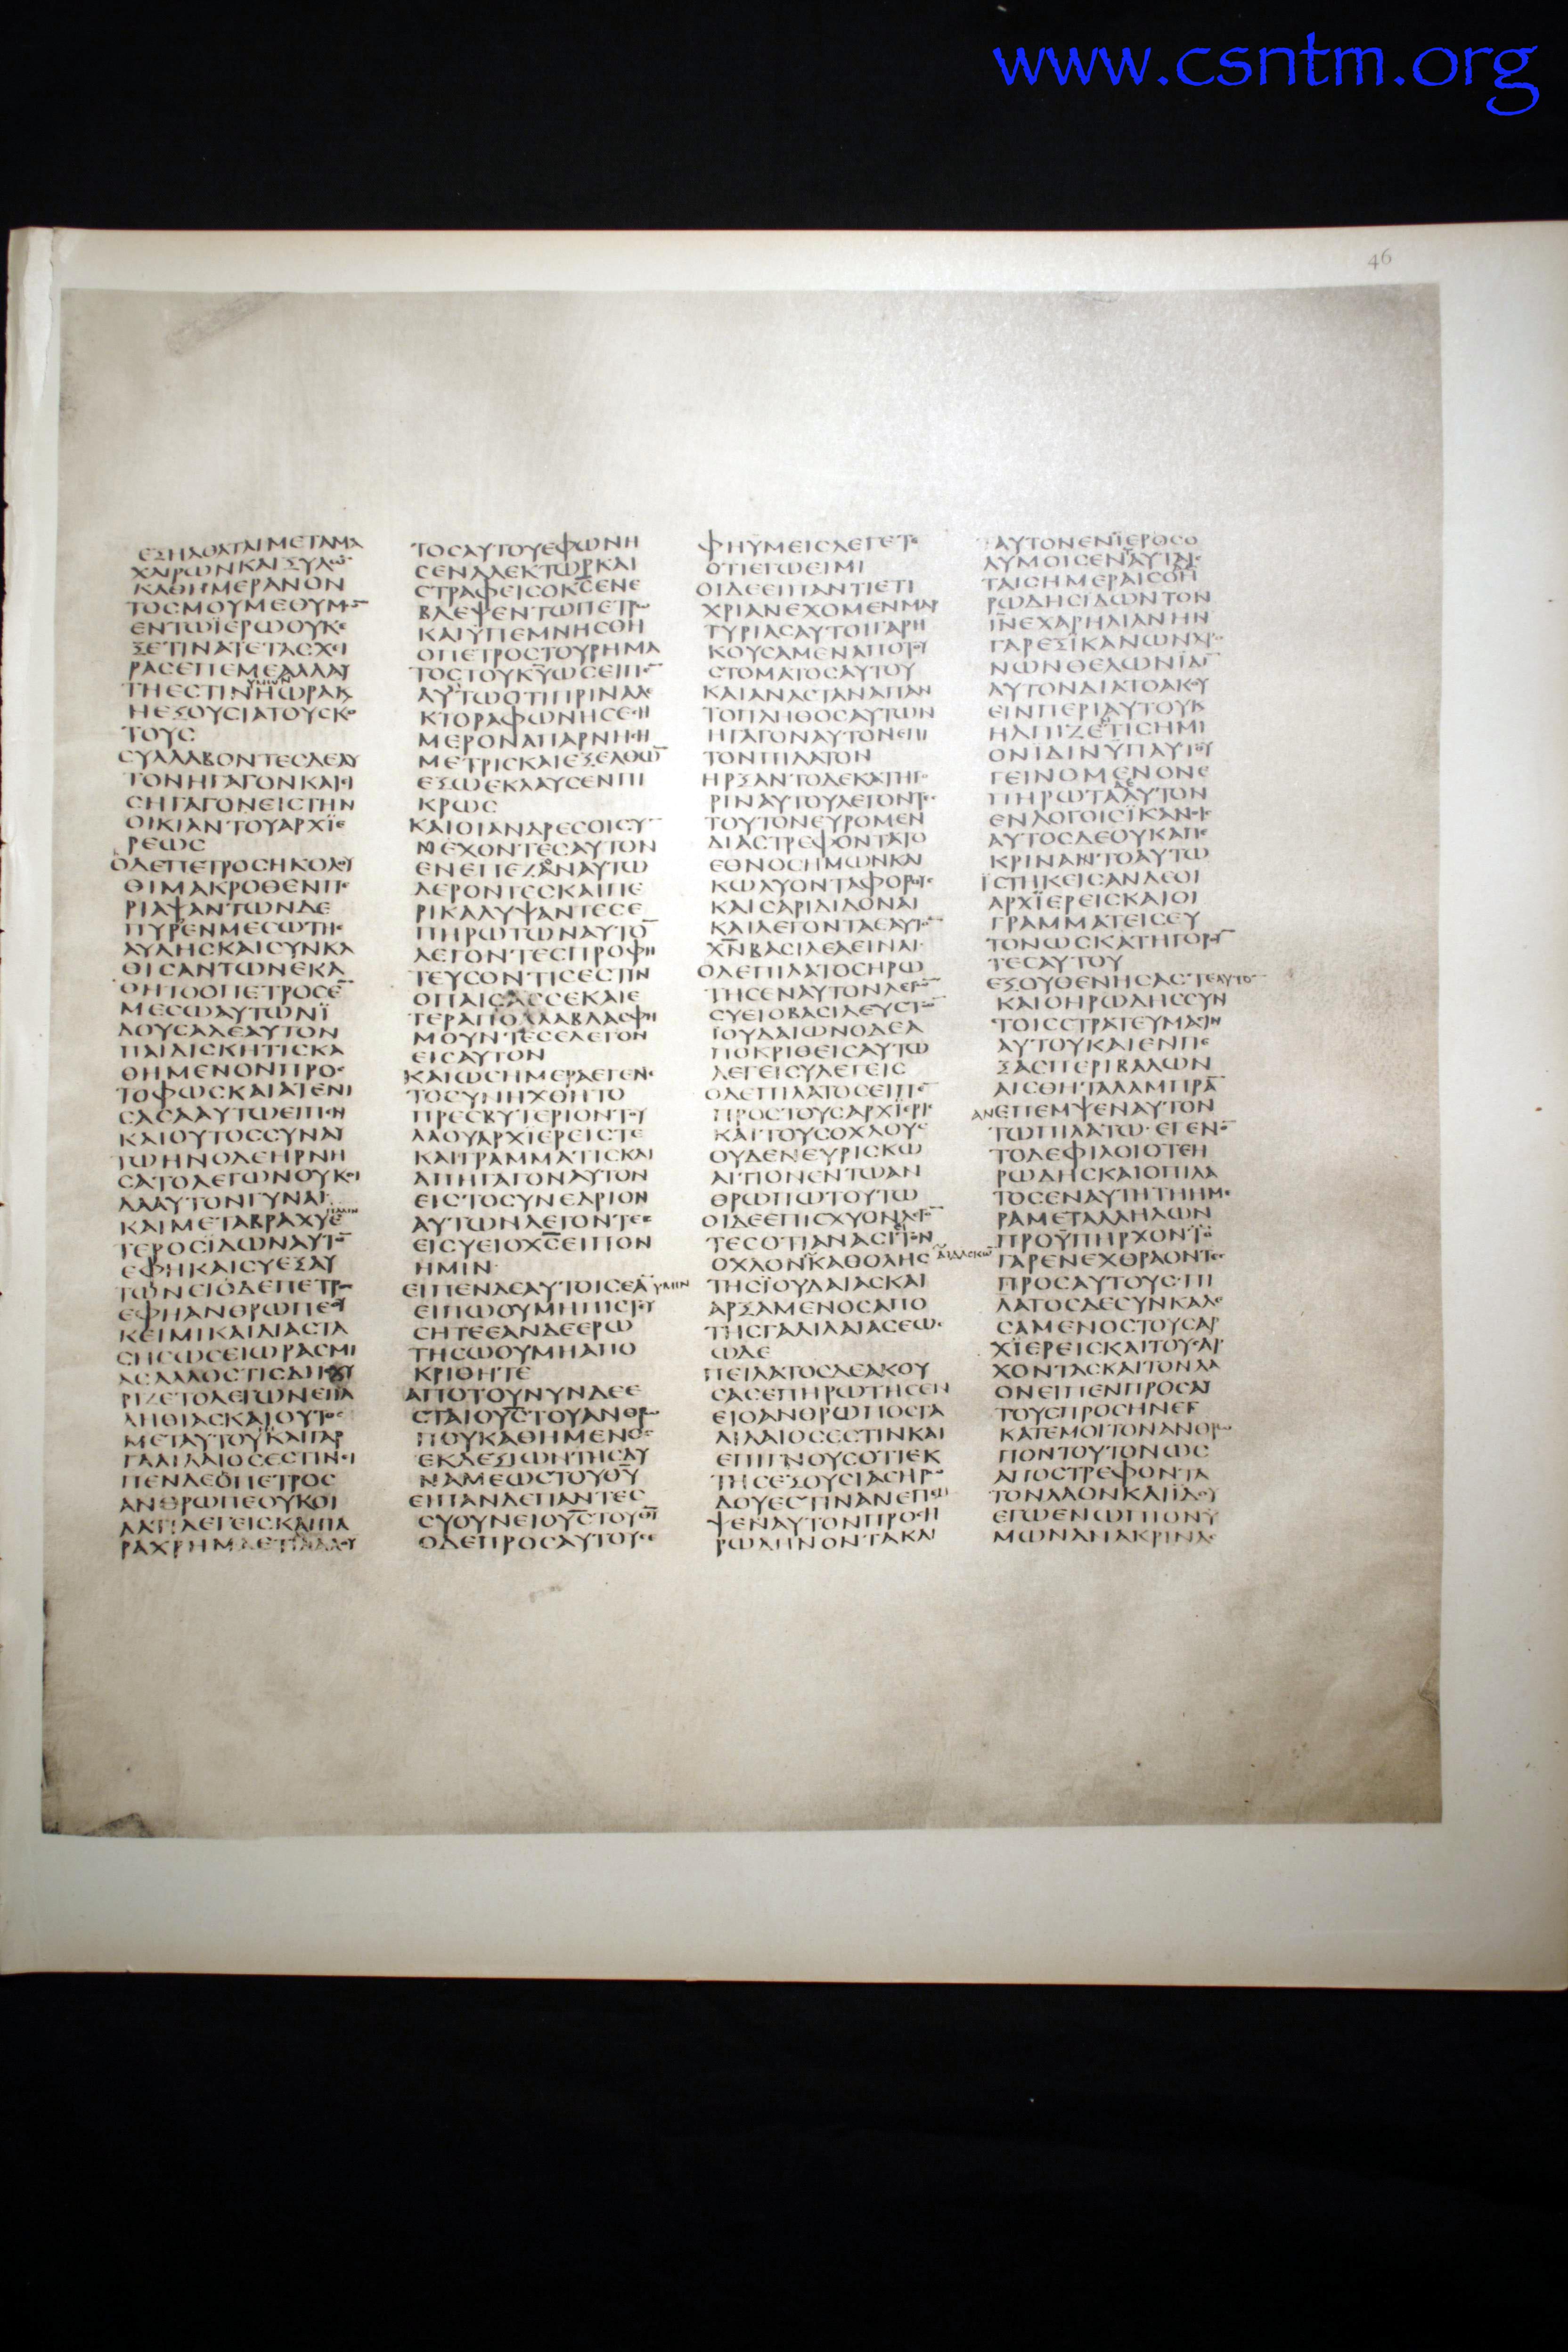 www.csntm.org
46
ΕΞΗΛΘΑΤΑΙΜΕΤΑΜΑ
ΧΑΙΡΩΝΚΑΙΞΥΛΩ̅
ΚΑΘΗΜΕΡΑΝΟΝ
ΤΟСΜΟΥΜΕΘΥΜΩ̅
ΕΝΤΩΪΕΡΩΟΥΚΕ
ΞΕΤΙΝΑΤΕΤΑСΧΙ
ΡΑСΕΠΕΜΕΑΛΛΑΥ
ΤΗΕСΤΙΝΗΩΡΑΚ
ΗΕΞΟΥСΙΑΤΟΥСΚΟ
ΤΟΥС
СΥΛΛΑΒΟΝΤΕСΔΕΑΥ
ΤΟΝΗΓΑΓΟΝΚΑΙΙ
СΗΓΑΓΟΝΕΙСΤΗΝ
ΟΙΚΙΑΝΤΟΥΑΡΧΪΕ
ΡΕΩС
ΟΔΕΠΕΤΡΟСΗΚΟΛΟΥ
ΘΙΜΑΚΡΟΘΕΝΠΕ
ΡΙΑΨΑΝΤΩΝΔΕ
ΠΥΡΕΝΜΕСΩΤΗС
ΑΥΛΗСΚΑΙСΥΝΚΑ
ΘΙСΑΝΤΩΝΕΚΑ
ΘΗΤΟΟΠΕΤΡΟСΕ̅
ΜΕСΩΑΥΤΩΝΪ
ΔΟΥСΑΔΕΑΥΤΟΝ
ΠΑΙΔΙСΚΗΤΙСΚΑ
ΘΗΜΕΝΟΝΠΡΟС
ΤΟΦΩСΚΑΙΑΤΕΝΙ
СΑСΑΑΥΤΩΕΙΠΕΝ
ΚΑΙΟΥΤΟССΥΝΑΥ
ΤΩΗΝΟΔΕΗΡΝΗ
СΑΤΟΛΕΓΩΝΟΥΚΟΙ
ΔΑΑΥΤΟΝΓΥΝΑΙ
ΚΑΙΜΕΤΑΒΡΑΧΥΕ
ΤΕΡΟСΪΔΩΝΑΥΤΟ̅
ΕΦΗΚΑΙСΥΕΞΑΥ
ΤΩΝΕΙΟΔΕΠΕΤΡΟС
ΕΦΗΑΝΘΡΩΠΕΟΥ
ΚΕΙΜΙΚΑΙΔΙΑСΤΑ
СΗСΩСΕΙΩΡΑСΜΙ
ΑСΑΛΛΟСΤΙСΔΙΙΧΥ
ΡΙΖΕΤΟΛΕΓΩΝΕΠΑ
ΛΗΘΙΑСΚΑΙΟΥΤΟС
ΜΕΤΑΥΤΟΥΚΑΙΓΑΡ
ΓΑΛΙΛΑΙΟСΕСΤΙΝΕΙ
ΠΕΝΔΕΟΠΕΤΡΟС
ΑΝΘΡΩΠΕΟΥΚΟΙ
ΔΑΤΙΛΕΓΕΙСΚΑΙΠΑ
ΡΑΧΡΗΜΑΕΤΙΛΑΛΟΥ
ΤΟСΑΥΤΟΥΕΦΩΝΗ
СΕΝΑΛΕΚΤΩΡΚΑΙ
СΤΡΑΦΕΙСΟΚ̅С̅ΕΝΕ
ΒΛΕΨΕΝΤΩΠΕΤΡΩ
ΚΑΙΫΠΕΜΝΗСΘΗ
ΟΠΕΤΡΟСΤΟΥΡΗΜΑ
ΤΟСΤΟΥΚ̅Υ̅ΩСΕΙΠΕ̅
ΑΥΤΩΟΤΙΠΡΙΝΑΛΕ
ΚΤΟΡΑΦΩΝΗСΕСΗ
ΜΕΡΟΝΑΠΑΡΝΗСΗ
ΜΕΤΡΙСΚΑΙΕΞΕΛΘΩ̅
ΕΞΩΕΚΛΑΥСΕΝΠΙ
ΚΡΩС
ΚΑΙΟΙΑΝΔΡΕСΟΙСΥ̅
ΝΕΧΟΝΤΕСΑΥΤΟΝ
ΕΝΕΠΕΖΑΝΑΥΤΩ
ΔΕΡΟΝΤΕСΚΑΙΠΕ
ΡΙΚΑΛΥΨΑΝΤΕСΕ
ΠΗΡΩΤΩΝΑΥΤΟ̅
ΛΕΓΟΝΤΕСΠΡΟΦΗ
ΤΕΥСΟΝΤΙСΕСΤΙΝ
ΟΠΑΙСΑССΕΚΑΙΕ
ΤΕΡΑΠΟΛΛΑΒΛΑСΦΗ
ΜΟΥΝΤΕСΕΛΕΓΟΝ
ΕΙСΑΥΤΟΝ
ΚΑΙΩСΗΜΕΡΑΕΓΕΝΕ
ΤΟСΥΝΗΧΘΗΤΟ
ΠΡΕСΒΥΤΕΡΙΟΝΤΟΥ
ΛΑΟΥΑΡΧΪΕΡΕΙСΤΕ
ΚΑΙΓΡΑΜΜΑΤΙСΚΑΙ
ΑΠΗΓΑΓΟΝΑΥΤΟΝ
ΕΙСΤΟСΥΝΕΔΡΙΟΝ
ΑΥΤΩΝΛΕΓΟΝΤΕС
ΕΙСΥΕΙΟΧ̅С̅ΕΙΠΟΝ
ΗΜΙΝ
ΕΙΠΕΝΔΕΑΥΤΟΙСΕΑ̅ ΥΜΙΝ
ΕΙΠΩΟΥΜΗΠΙСΤΕΥ
СΗΤΕΕΑΝΔΕΕΡΩ
ΤΗСΩΟΥΜΗΑΠΟ
ΚΡΙΘΗΤΕ
ΑΠΟΤΟΥΝΥΝΔΕΕ
СΤΑΙΟΥ̅С̅ΤΟΥΑΝΘΡΩ
ΠΟΥΚΑΘΗΜΕΝΟС
ΕΚΔΕΞΙΩΝΤΗСΔΥ
ΝΑΜΕΩСΤΟΥΘ̅Υ̅
ΕΙΠΑΝΔΕΠΑΝΤΕС
СΥΟΥΝΕΙΟΥ̅С̅ΤΟΥΘ̅Υ̅
ΟΔΕΠΡΟСΑΥΤΟΥСΕ
ΦΗΫΜΕΙСΛΕΓΕΤΕ
ΟΤΙΕΓΩΕΙΜΙ
ΟΙΔΕΕΙΠΑΝΤΙΕΤΙ
ΧΡΙΑΝΕΧΟΜΕΝΜΑΡ
ΤΥΡΙΑСΑΥΤΟΙΓΑΡΗ
ΚΟΥСΑΜΕΝΑΠΟΤΟΥ
СΤΟΜΑΤΟСΑΥΤΟΥ
ΚΑΙΑΝΑСΤΑΝΑΠΑΝ
ΤΟΠΛΗΘΟСΑΥΤΩΝ
ΗΓΑΓΟΝΑΥΤΟΝΕΠΙ
ΤΟΝΠΙΛΑΤΟΝ
ΗΡΞΑΝΤΟΔΕΚΑΤΗΓΟ
ΡΙΝΑΥΤΟΥΛΕΓΟΝΤΕС
ΤΟΥΤΟΝΕΥΡΟΜΕΝ
ΔΙΑСΤΡΕΦΟΝΤΑΤΟ
ΕΘΝΟСΗΜΩΝΚΑΙ
ΚΩΛΥΟΝΤΑΦΟΡΟΥС
ΚΑΙСΑΡΙΔΙΔΟΝΑΙ
ΚΑΙΛΕΓΟΝΤΑΕΑΥΤΟ̅
Χ̅Ν̅ΒΑСΙΛΕΑΕΙΝΑΙ
ΟΔΕΠΙΛΑΤΟСΗΡΩ
ΤΗСΕΝΑΥΤΟΝΛΕΓΩ̅
СΥΕΙΟΒΑСΙΛΕΥСΤΩ̅
ΙΟΥΔΑΙΩΝΟΔΕΑ
ΠΟΚΡΙΘΕΙСΑΥΤΩ
ΛΕΓΕΙСΥΛΕΓΕΙС
ΟΔΕΠΙΛΑΤΟСΕΙΠΕ̅
ΠΡΟСΤΟΥСΑΡΧΪΕΡΙС
ΚΑΙΤΟΥСΟΧΛΟΥС
ΟΥΔΕΝΕΥΡΙСΚΩ
ΑΙΤΙΟΝΕΝΤΩΑΝ
ΘΡΩΠΩΤΟΥΤΩ
ΟΙΔΕΕΠΙСΧΥΟΝΛΕΓΟ̅
ΤΕСΟΤΙΑΝΑСΙΤΟΝ
ΟΧΛΟΝΚΑΘΟΛΗС ΔΙΔΑСΚΩ̅
ΤΗСΪΟΥΔΑΙΑСΚΑΙ
ΑΡΞΑΜΕΝΟСΑΠΟ
ΤΗСΓΑΛΙΛΑΙΑСΕΩС
ΩΔΕ
ΠΕΙΛΑΤΟСΔΕΑΚΟΥ
СΑСΕΠΗΡΩΤΗСΕΝ
ΕΙΟΑΝΘΡΩΠΟСΓΑ
ΛΙΛΑΙΟСΕСΤΙΝΚΑΙ
ΕΠΙΓΝΟΥСΟΤΙΕΚ
ΤΗСΕΞΟΥСΙΑСΗΡΩ
ΔΟΥΕСΤΙΝΑΝΕΠΕΜ
ΨΕΝΑΥΤΟΝΠΡΟСΗ
ΡΩΔΗΝΟΝΤΑΚΑΙ
ΑΥΤΟΝΕΝΪΕΡΟСΟ
ΛΥΜΟΙСΕΝΑΥΤΑΙС
ΤΑΙСΗΜΕΡΑΙСΟΗ
ΡΩΔΗСΙΔΩΝΤΟΝ
Ι̅Ν̅ΕΧΑΡΗΛΙΑΝΗΝ
ΓΑΡΕΞΪΚΑΝΩΝΧΡΟ
ΝΩΝΘΕΛΩΝΪΔΙ̅
ΑΥΤΟΝΔΙΑΤΟΑΚΟΥ
ΕΙΝΠΕΡΙΑΥΤΟΥΚ
ΗΛΠΙΖΕΤΙСΗΜΙ
ΟΝΙΔΙΝΫΠΑΥΤΟΥ
ΓΕΙΝΟΜΕΝΟΝΕ
ΠΗΡΩΤΑΔΕΑΥΤΟΝ
ΕΝΛΟΓΟΙСΪΚΑΝΟΙС
ΑΥΤΟСΔΕΟΥΚΑΠΕ
ΚΡΙΝΑΝΤΟΑΥΤΩ
ΪСΤΗΚΕΙСΑΝΔΕΟΙ
ΑΡΧΪΕΡΕΙСΚΑΙΟΙ
ΓΡΑΜΜΑΤΕΙСΕΥ
ΤΟΝΩСΚΑΤΗΓΟΡΟΥ̅
ΤΕСΑΥΤΟΥ
ΕΞΟΥΘΕΝΗСΑСΔΕΑΥΤΟ̅
ΚΑΙΟΗΡΩΔΗССΥΝ
ΤΟΙССΤΡΑΤΕΥΜΑСΙΝ
ΑΥΤΟΥΚΑΙΕΝΠΕ
ΞΑСΠΕΡΙΒΑΛΩΝ
ΑΙСΘΗΤΑΛΑΜΠΡΑ̅
ΑΝΕΠΕΜΨΕΝΑΥΤΟΝ
ΤΩΠΙΛΑΤΩ·ΕΓΕΝΟ̅
ΤΟΔΕΦΙΛΟΙΟΤΕΗ
ΡΩΔΗСΚΑΙΟΠΙΛΑ
ΤΟСΕΝΑΥΤΗΤΗΗΜΕ
ΡΑΜΕΤΑΛΛΗΛΩΝ
ΠΡΟΫΠΗΡΧΟΝΤΟ
ΓΑΡΕΝΕΧΘΡΑΟΝΤΕС
ΠΡΟСΑΥΤΟΥС·ΠΙ
ΛΑΤΟСΔΕСΥΝΚΑΛΕ
СΑΜΕΝΟСΤΟΥСΑΡ
ΧΪΕΡΕΙСΚΑΙΤΟΥСΑΡ
ΧΟΝΤΑСΚΑΙΤΟΝΛΑ
ΟΝΕΙΠΕΝΠΡΟСΑΥ
ΤΟΥСΠΡΟСΗΝΕΓ
ΚΑΤΕΜΟΙΤΟΝΑΝΘΡΩ
ΠΟΝΤΟΥΤΟΝΩС
ΑΠΟСΤΡΕΦΟΝΤΑ
ΤΟΝΛΑΟΝΚΑΙΪΔΟΥ
ΕΓΩΕΝΩΠΙΟΝΫ
ΜΩΝΑΝΑΚΡΙΝΑС